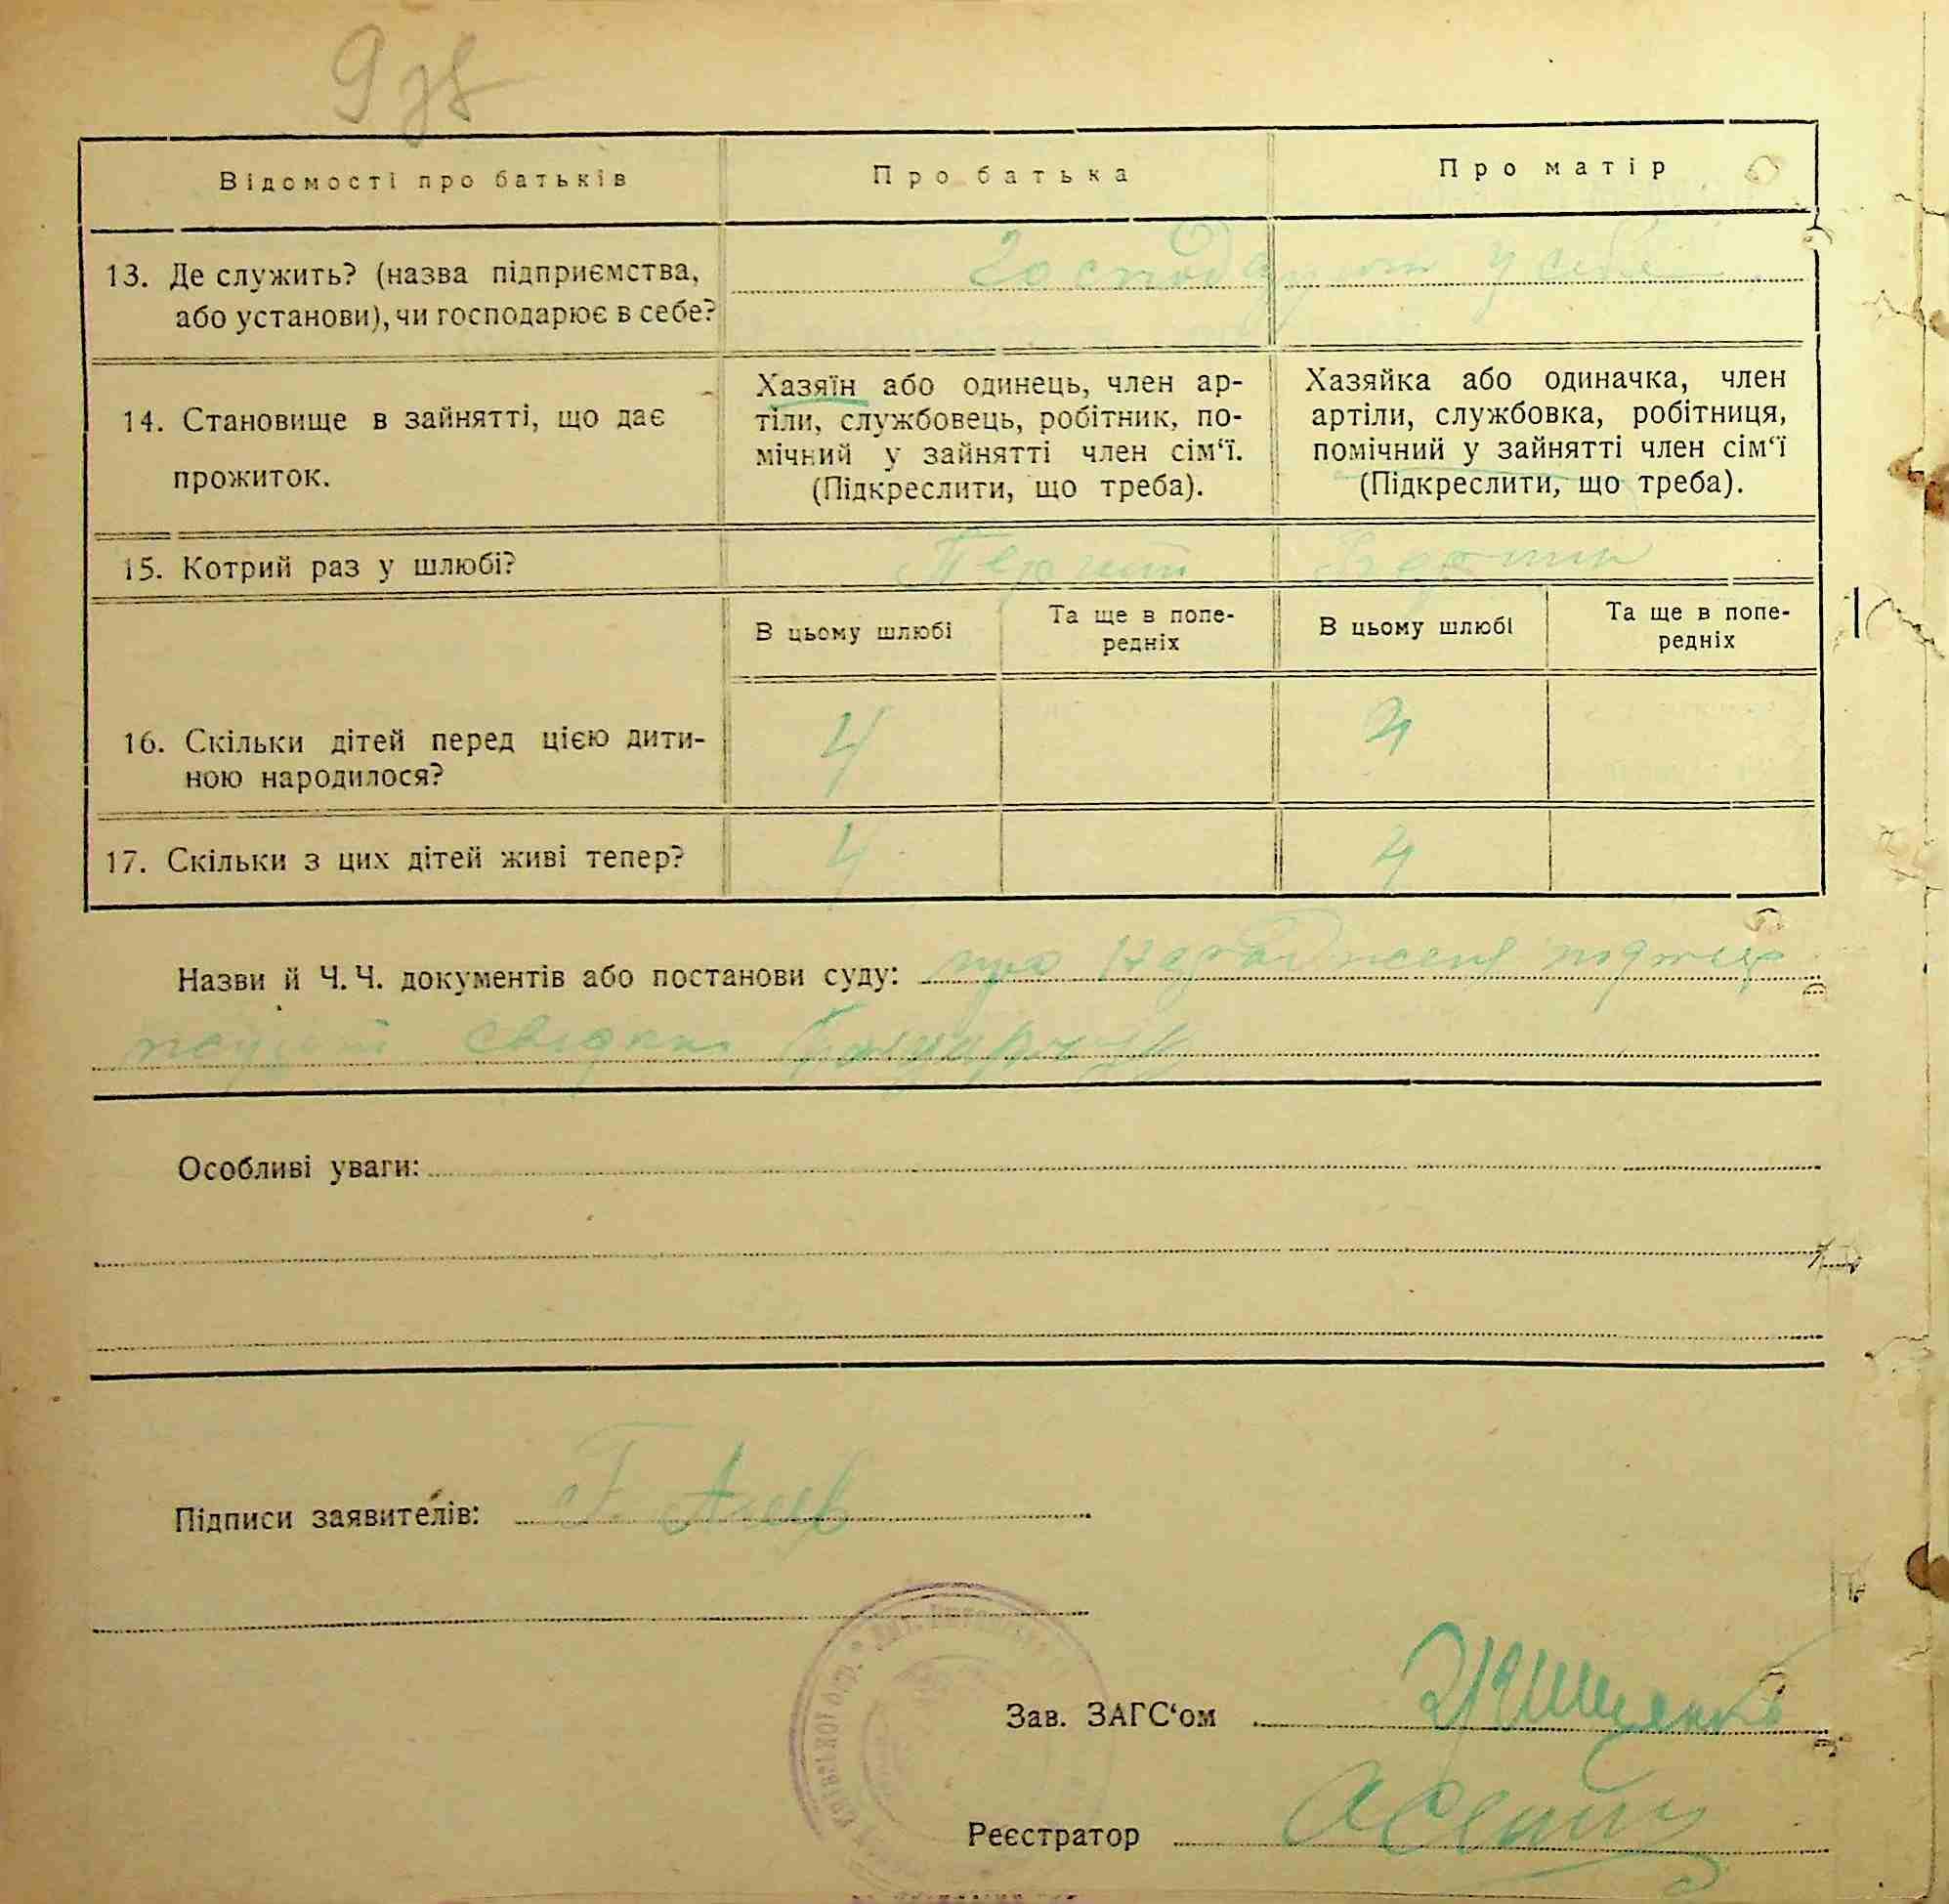 9 зв
Відомості про батьків
Про батька
Про матір
13. Де служить? (назва підприємства,
або установи), чи господарює в себе?
Господарюют у себе
14. Становище в зайнятті, що дає
прожиток.
Хазяїн або одинець, член ар-
тіли, службовець, робітник, по-
мічний у зайнятті член сім‘ї.
(Підкреслити, що треба).
Хазяйка або одиначка, член
артіли, службовка, робітниця,
помічний у зайнятті член сім‘ї
(Підкреслити, що треба).
15. Котрий раз у шлюбі?
В цьому шлюбі
Та ще в попе-
редніх
В цьому шлюбі
Та ще в попе-
редніх
16. Скільки дітей перед цією дити-
ною народилося?
4
4
17. Скільки з цих дітей живі тепер?
4
4
Назви й Ч. Ч. документів або постанови суду: про
Особливі уваги:
Підписи заявителів:
Зав. ЗАГС‘ом
Реєстратор